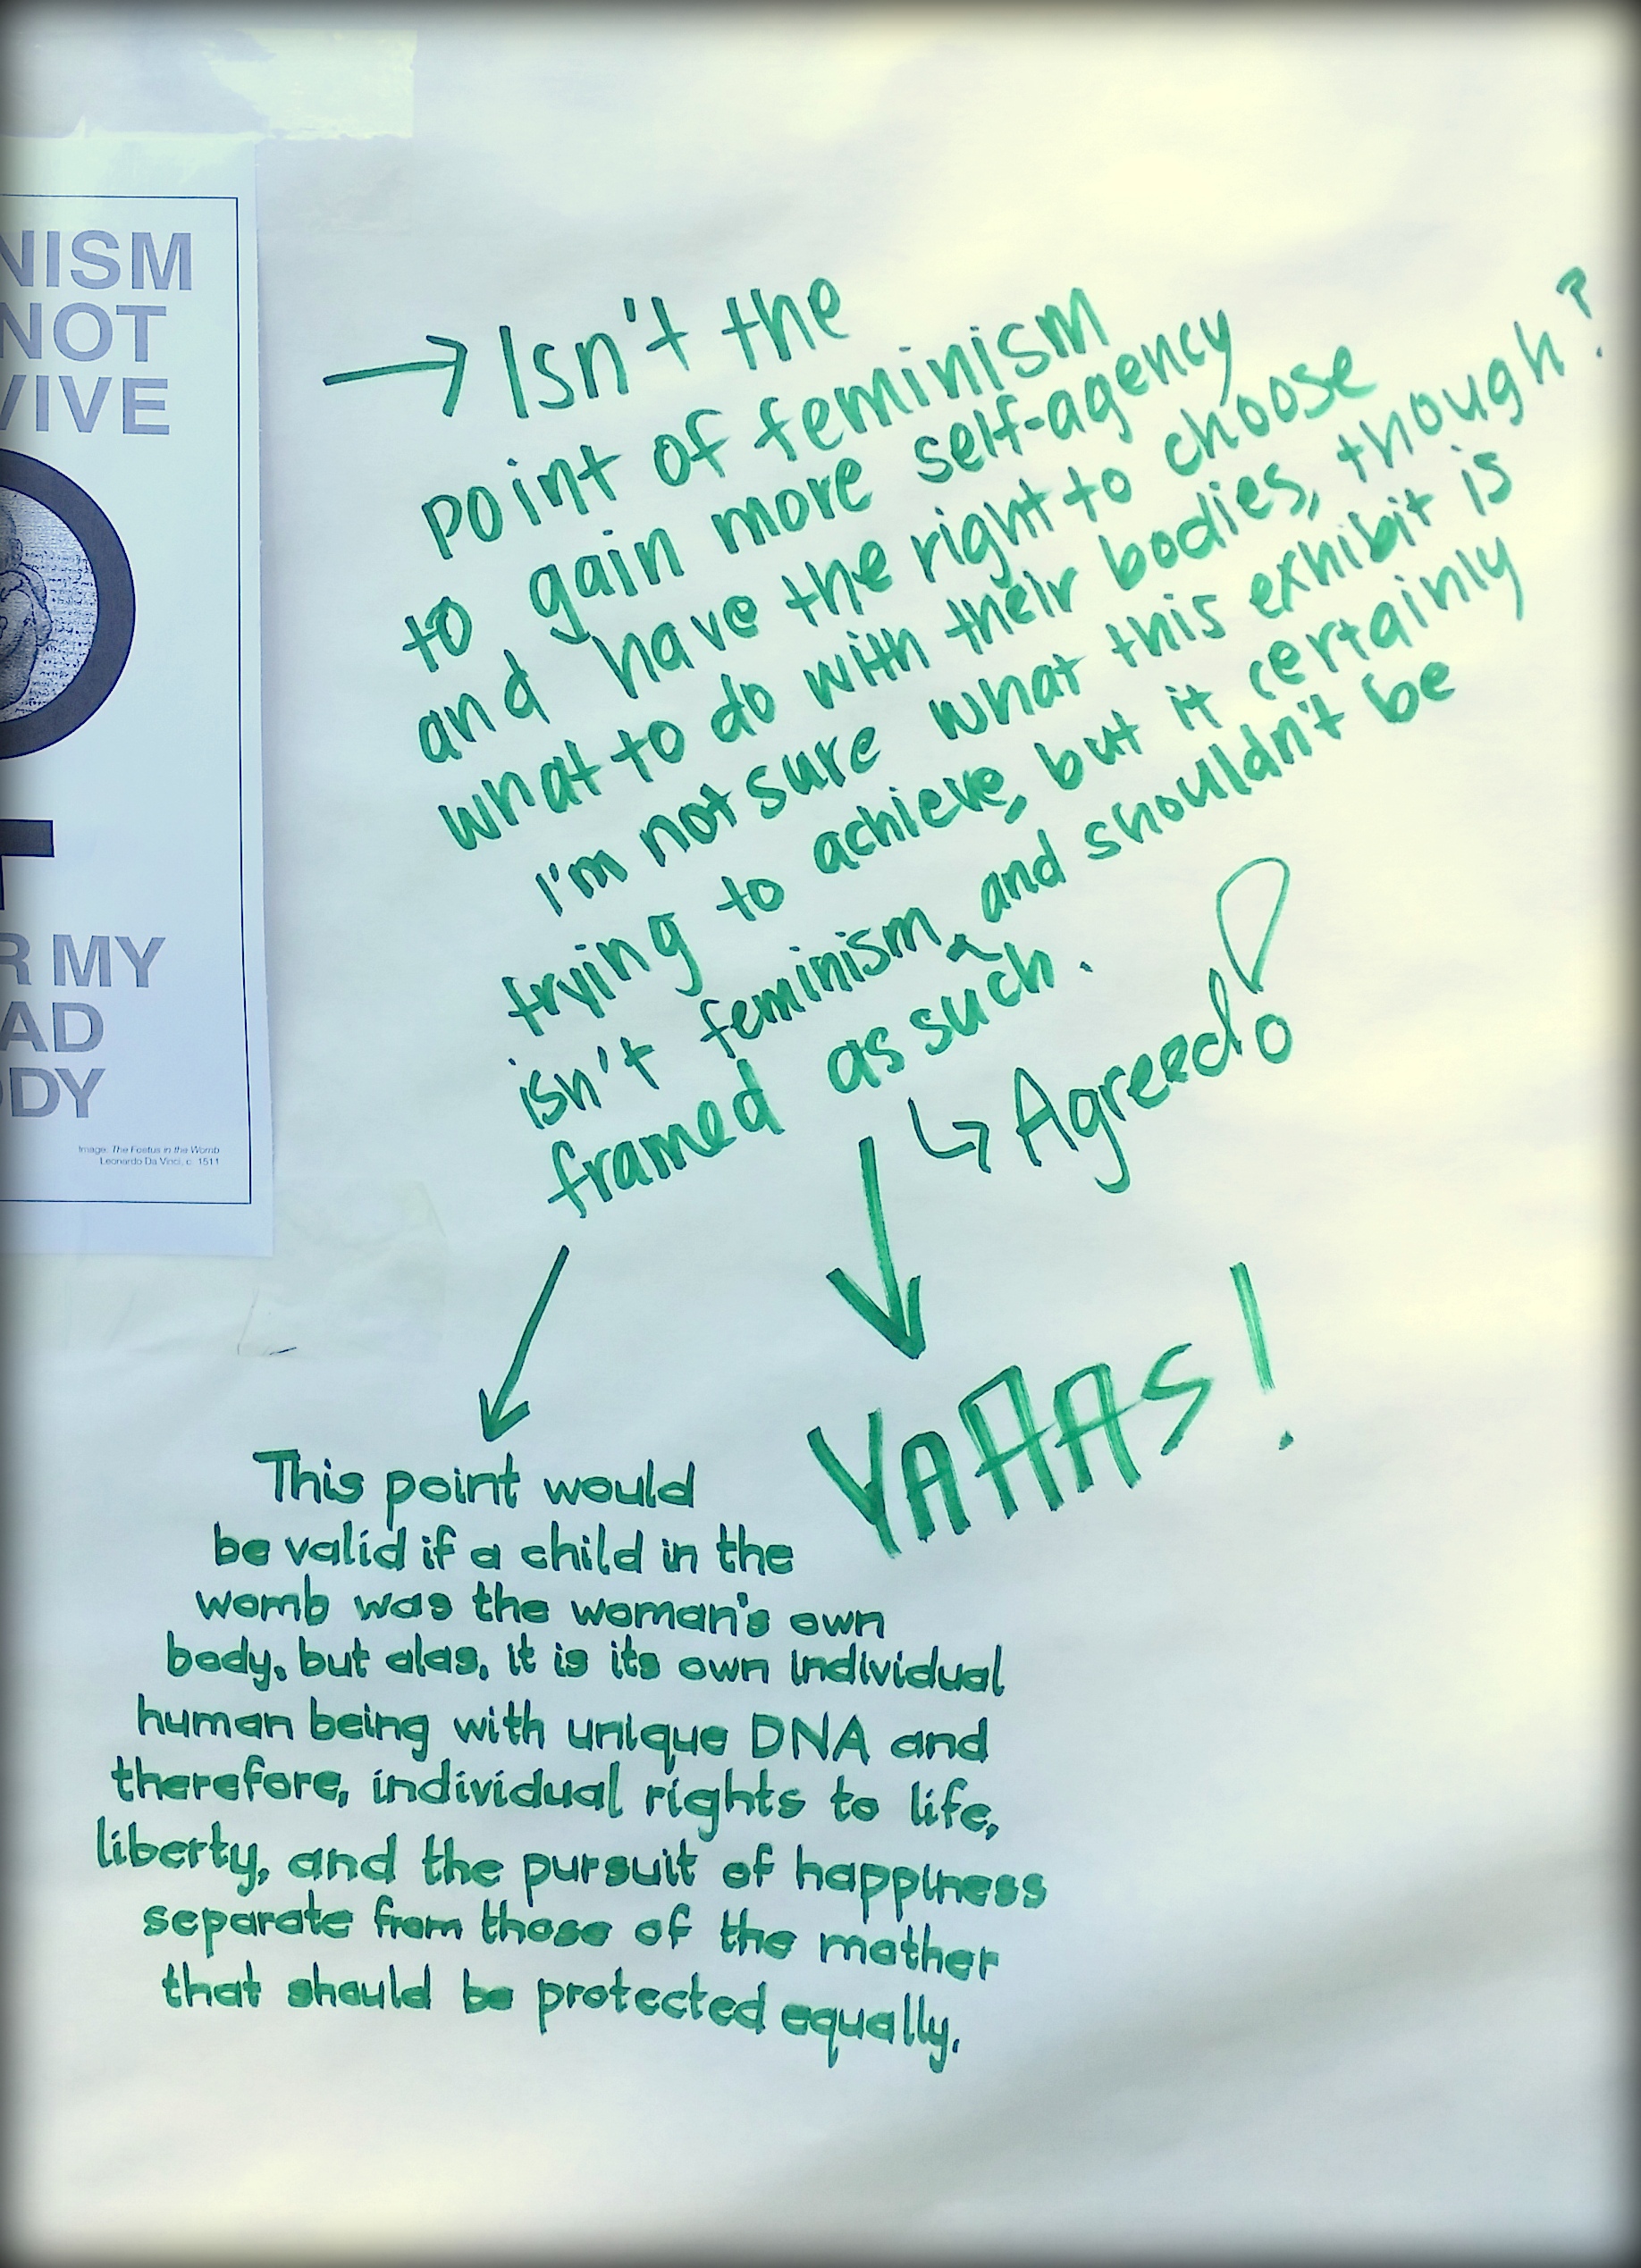 NISM
NOT
VIVE
R MY
AD
DY
Image: The Foetus in the Womb
Leonardo Da Vinci, c. 1511
→ Isn't the
point of feminism
to gain more self-agency
and have the right to choose
what to do with their bodies, though?
I'm not sure what this exhibit is
trying to achieve, but it certainly
isn't feminism and shouldn't be
framed as such.
↳ Agreed!
YAAAS!
This point would
be valid if a child in the
womb was the woman's own
body, but alas, it is its own individual
human being with unique DNA and
therefore, individual rights to life,
liberty, and the pursuit of happiness
separate from those of the mother
that should be protected equally.